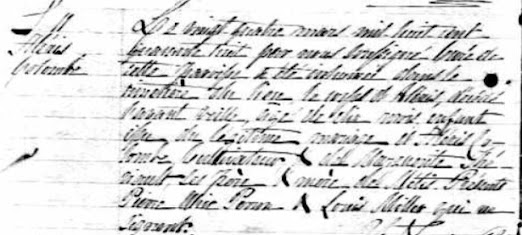 Alexis
Colombe
Le vingt quatre mars mil huit cent
quarante huit par nous soussigné Curé de
cette Paroisse a été inhumé dans le
cimetière du lieu le corps d'Alexis, décédé
l'avant veille, âgé de dix mois, enfant
issu du légitime mariage d'Alexis Co-
lombe, Cultivateur & de Marguerite
ses père & mère de Métis. Présents
Pierre & Louis Miller qui ne
signent.